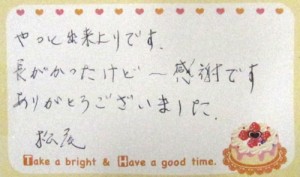 やっと出来上りです。
長がかったけど〜感謝です
ありがとうございました。
Take a bright & Have a good time.